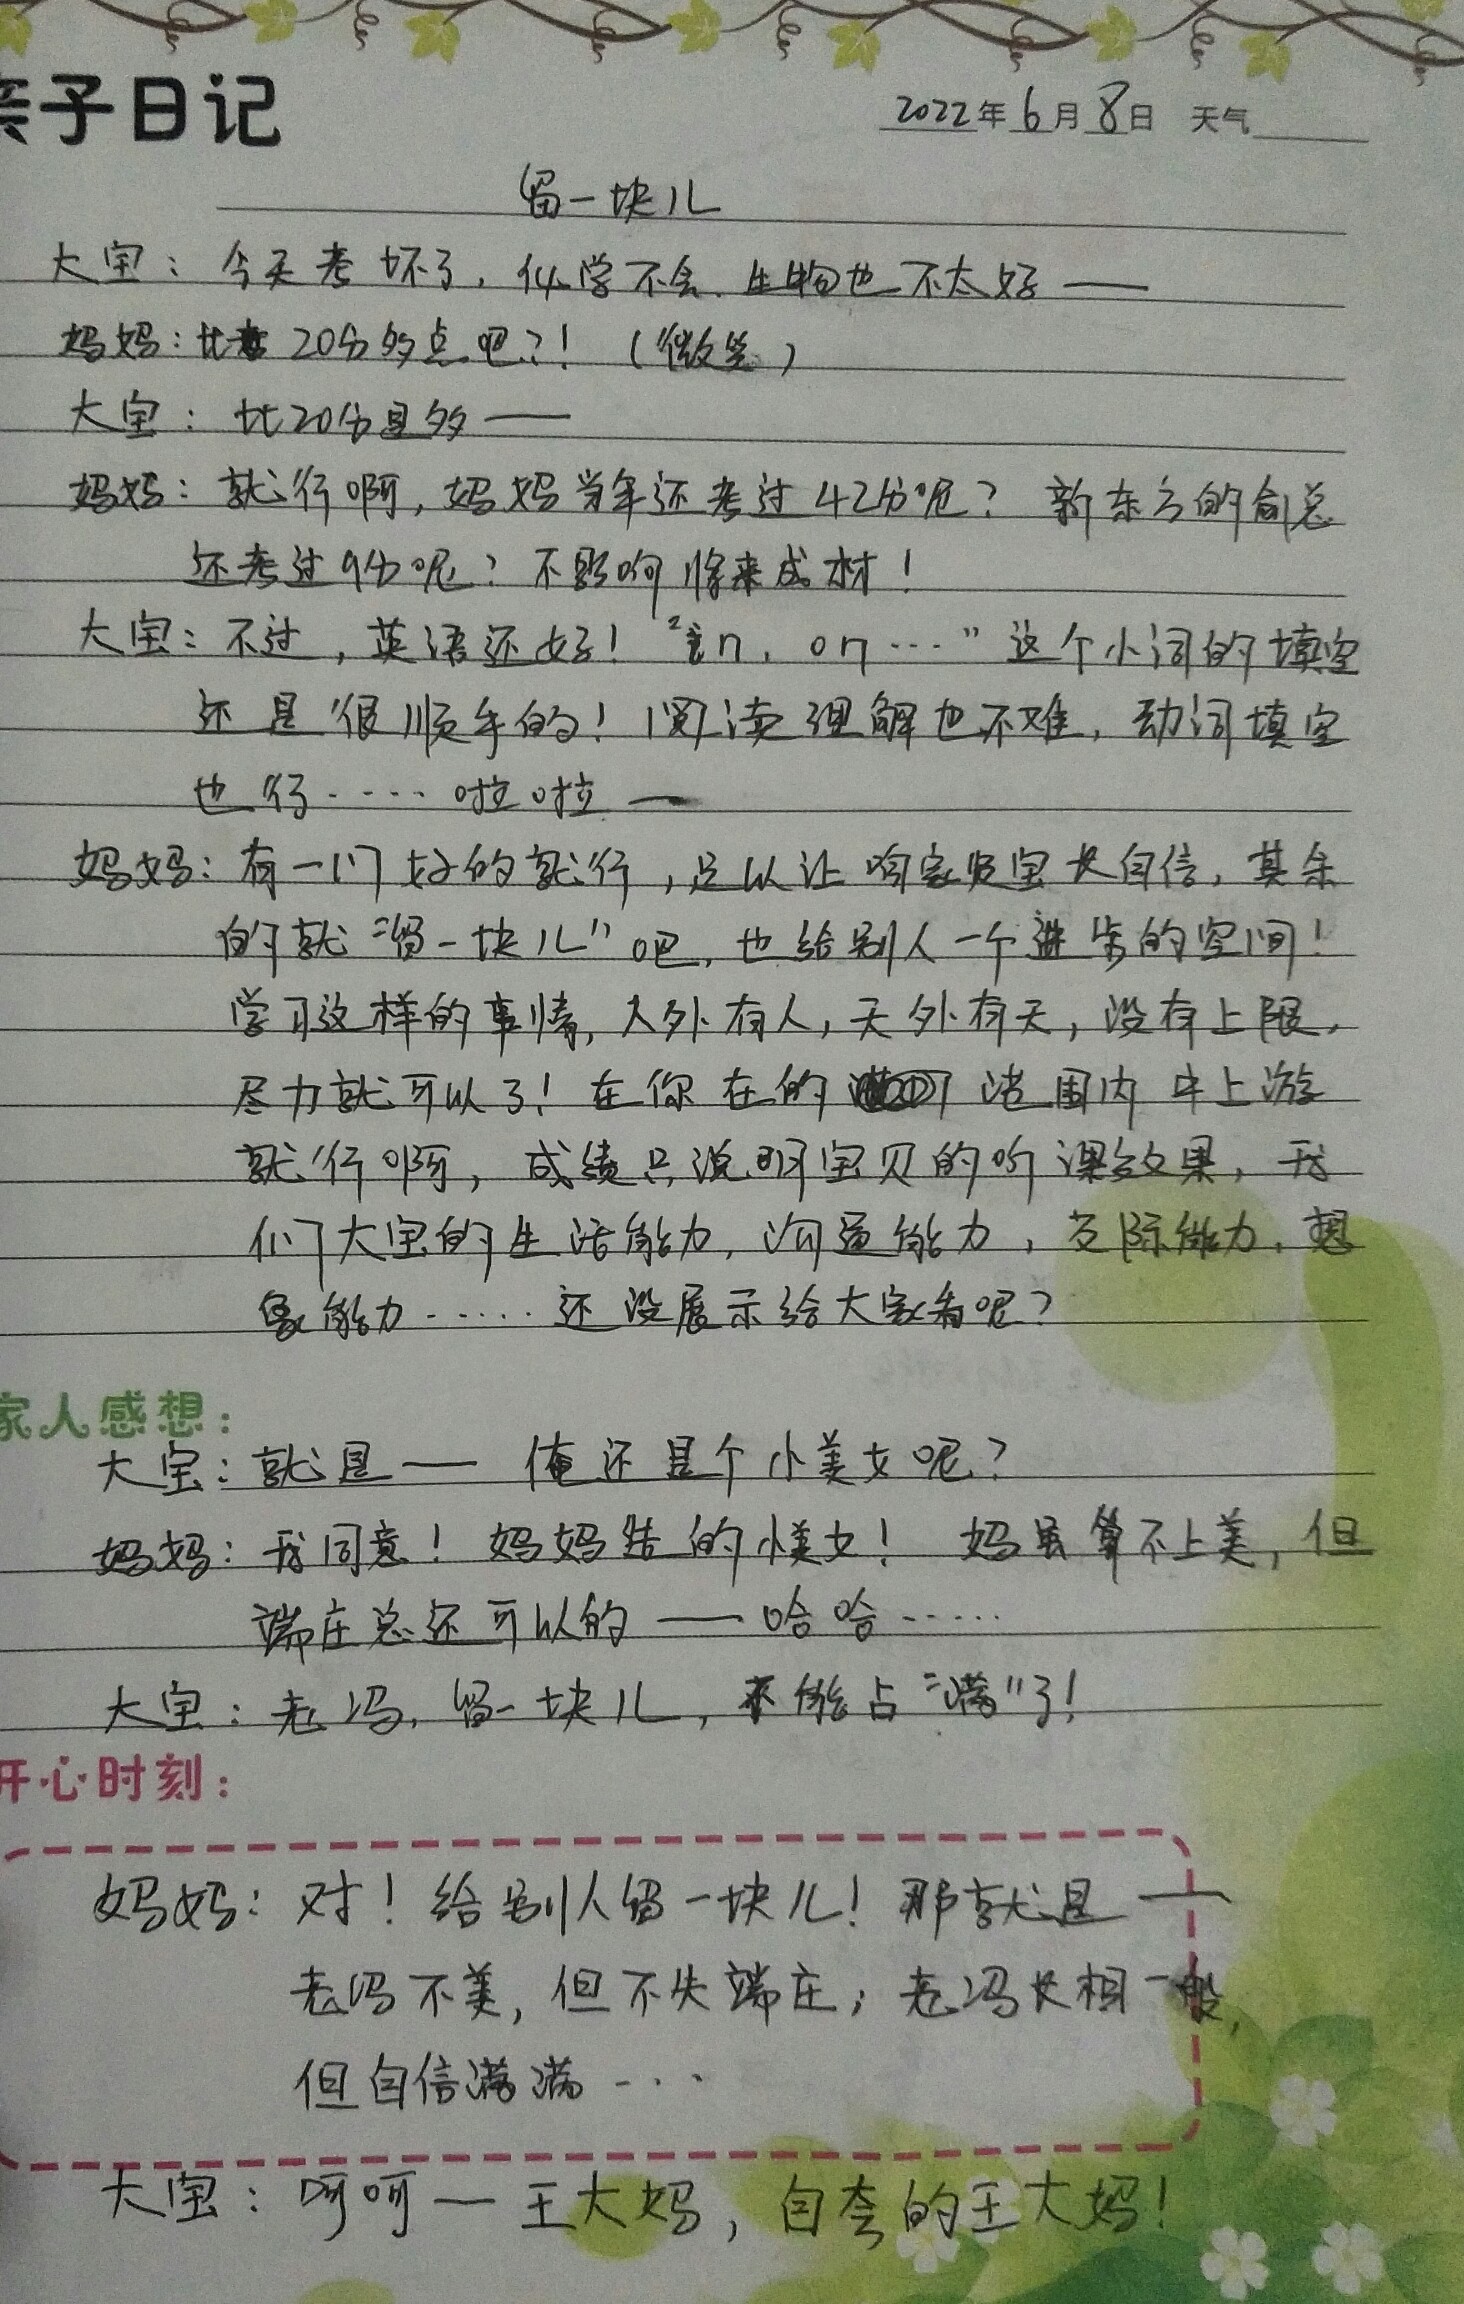 亲子日记
2022年6月8日 天气
留一块儿
大宝：今天考坏了，化学不会，生物也不太好——
妈妈：比 20分多点吧？！（微笑）
大宝：比20分是多——
妈妈：就行啊，妈妈当年还考过42分呢？新东方的俞总
还考过9分呢？不影响将来成材！
大宝：不过，英语还好！“in，on…”这个小词的填空
还是很顺手的！阅读理解也不难，动词填空
也行……啦啦—
妈妈：有一门好的就行，足以让咱家贝宝长自信，其余
的就“留一块儿”吧，也给别人一个进步的空间！
学习这样的事情，人外有人，天外有天，没有上限，
尽力就可以了！在你在的范围内中上游
就行啊，成绩只说明宝贝的听课效果，我
们大宝的生活能力，沟通能力，交际能力，想
象能力……还没展示给大家看呢？
家人感想：
大宝：就是——俺还是个小美女呢？
妈妈：我同意！妈妈生的小美女！妈虽算不上美，但
端庄总还可以的——哈哈……
大宝：老冯，留一块儿，不能占“满”了！
开心时刻：
妈妈：对！给别人留一块儿！那就是——
老冯不美，但不失端庄；老冯长相一般，
但自信满满…
大宝：呵呵—王大妈，自夸的王大妈！